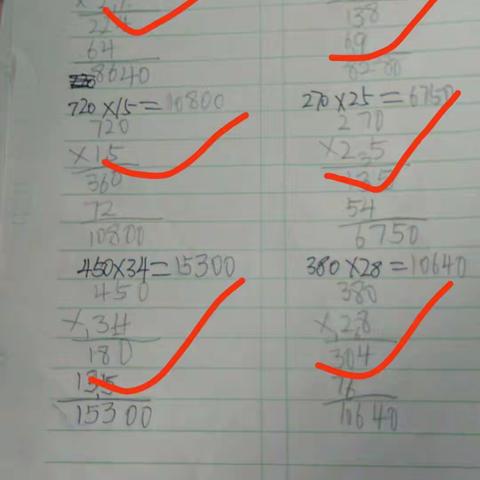 224
64
8640
138
69
8280
720×15=10800
720
×15
360
72
10800
270×25=6750
270
×25
135
54
6750
450×34=15300
450
×34
180
135
15300
380×28=10640
380
×28
304
76
10640